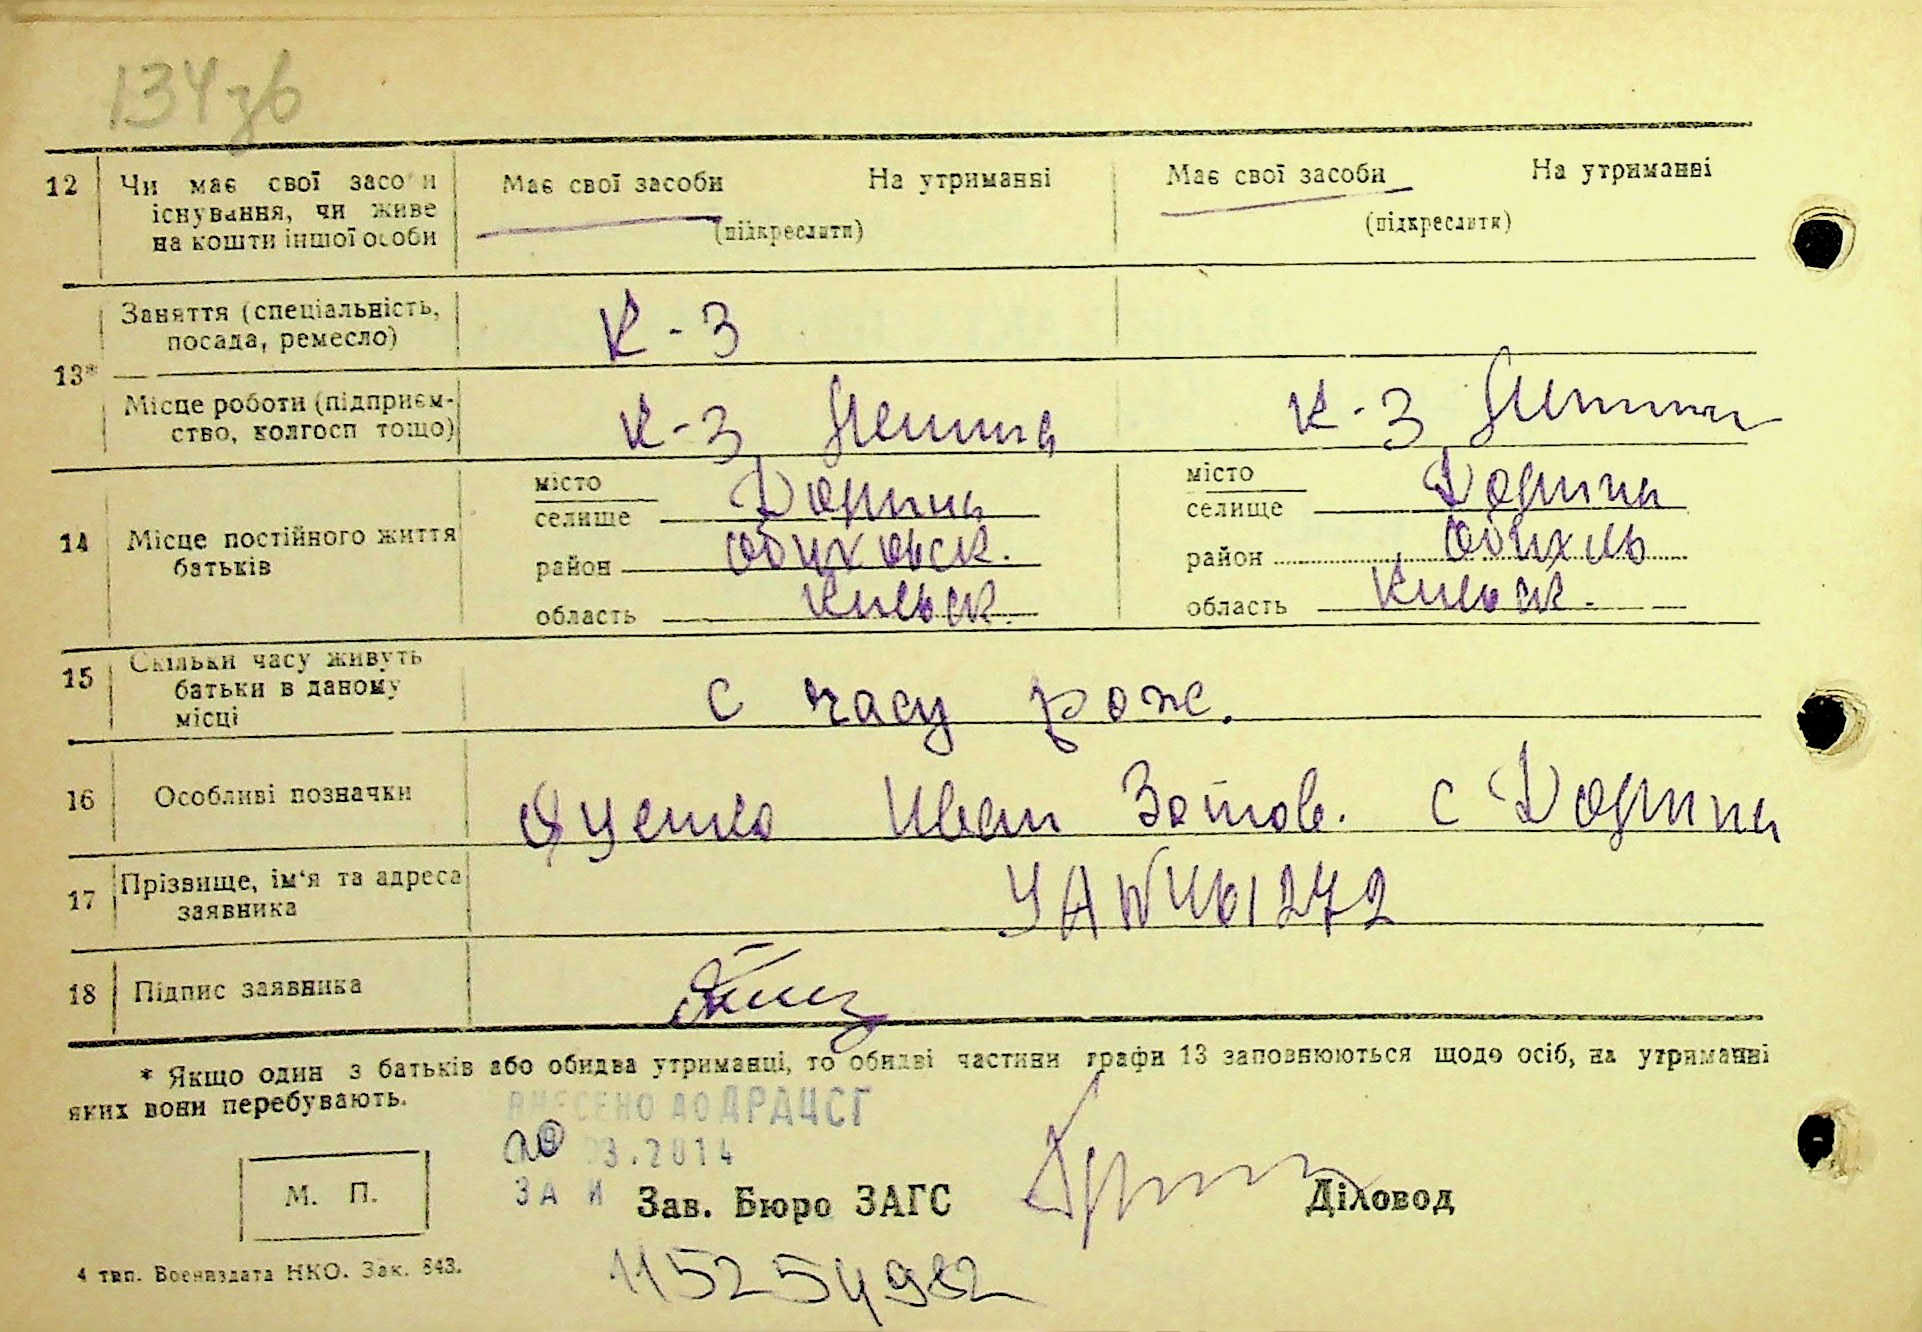 134зв
12 Чи має свої засоби Має свої засоби На утриманні Має свої засоби На утриманні
існування, чи живе (підкреслити) (підкреслити)
на кошти іншої особи
Заняття (спеціальність, К-З
посада, ремесло)
13*
Місце роботи (підприєм- К-З Ленина К-З Ленина
ство, колгосп тощо)
місто місто
селище селище
14 Місце постійного життя
батьків
район Обуховск. район
область Киевск. область Киевск.
15 Скільки часу живуть
батьки в даному с часу рож.
місці
16 Особливі позначки Яценко Иван с
17 Прізвище, ім'я та адреса
заявника
18 Підпис заявника
* Якщо один з батьків або обидва утриманці, то обидві частини графи 13 заповнюються щодо осіб, на утриманні
яких вони перебувають.
ВНЕСЕНО ДО ДРАЦСГ
20 03.2014
ЗА И
М. П. Зав. Бюро ЗАГС Діловод
4 тип. Воениздата НКО. Зак. 843.
1152 54982